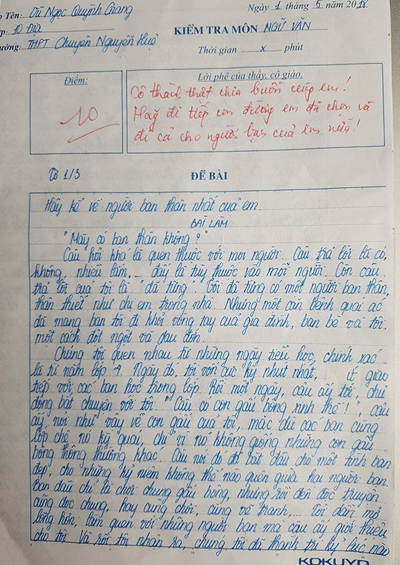 Tên: Vũ Ngọc Quỳnh Giang
Ngày 1 tháng 5 năm
Lớp: 10 Địa
KIỂM TRA MÔN NGỮ VĂN
Trường: THPT Chuyên Nguyễn Huệ
Thời gian x phút
Điểm:
10
Lời phê của thầy, cô giáo.
Cô thành thật chia buồn cùng em!
Hãy đi tiếp con đường em đã chọn và
đi cả cho người bạn của em nữa!
Tờ 1/3
ĐỀ BÀI
Hãy kể về người bạn thân nhất của em
BÀI LÀM
"Mày có bạn thân không?"
Câu hỏi khá là quen thuộc với mọi người. Câu trả lời là có,
không, nhiều lắm,... đấy là tùy thuộc vào mỗi người. Còn câu
trả lời của tôi là "đã từng". Tôi đã từng có một người bạn thân,
thân thiết như chị em trong nhà. Nhưng một căn bệnh quái ác
đã mang bạn tôi đi khỏi vòng tay của gia đình, bạn bè và tôi
một cách đột ngột và đau đớn.
Chúng tôi quen nhau từ những ngày tiểu học, chính xác
là từ năm lớp 4. Ngày đó, tôi vốn cực kỳ nhút nhát, ít giao
tiếp với các bạn học trong lớp. Rồi một ngày, cậu ấy tới, chủ
động bắt chuyện với tôi: "Cậu có con gấu bông xinh thế!", cậu
ấy nói như vậy về con gấu của tôi, mặc dù các bạn cùng
lớp chê nó kỳ quái, chỉ vì nó không giống những con gấu
bông thông thường khác. Câu nói đó đã bắt đầu cho một tình bạn
đẹp, cho những kỷ niệm không thể nào quên giữa hai người bạn.
Ban đầu chỉ là chơi chung gấu bông, nhưng rồi đổi đọc truyện
cùng đọc chung, hay cùng chơi, cùng vẽ tranh,... Tôi dần mở
lòng hơn, làm quen với những người bạn mà cậu ấy giới thiệu
cho tôi. Và rồi tôi nhận ra, chúng tôi đã thành tri kỷ lúc nào
KOKUYO